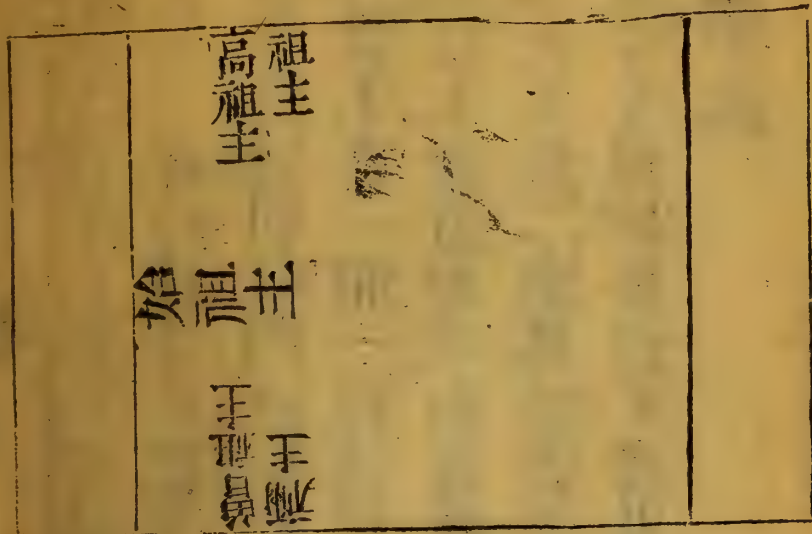 祖主
高祖主
始祖主
曾祖主
禰主